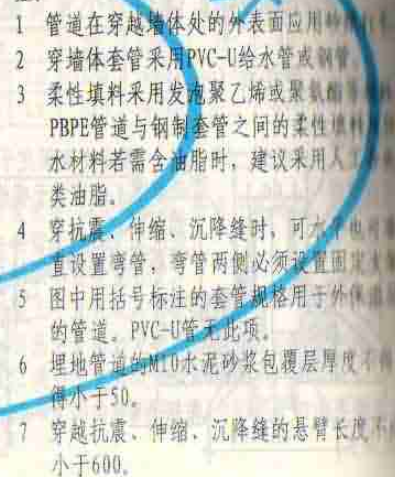 1 管道在穿越墙体处的外表面应用砂
2 穿墙体套管采用PVC-U给水管或钢管
3 柔性填料采用发泡聚乙烯或聚氨酯等
PBPE管道与钢制套管之间的柔性填料
水材料若需含油脂时，建议采用人工
类油脂。
4 穿抗震、伸缩、沉降缝时，可水平也可
直设置弯管，弯管两侧必须设置固定
5 图中用括号标注的套管规格用于外保温
的管道。PVC-U管无此项。
6 埋地管道的M10水泥砂浆包覆层厚度不
得小于50。
7 穿越抗震、伸缩、沉降缝的悬臂长度不
小于600。